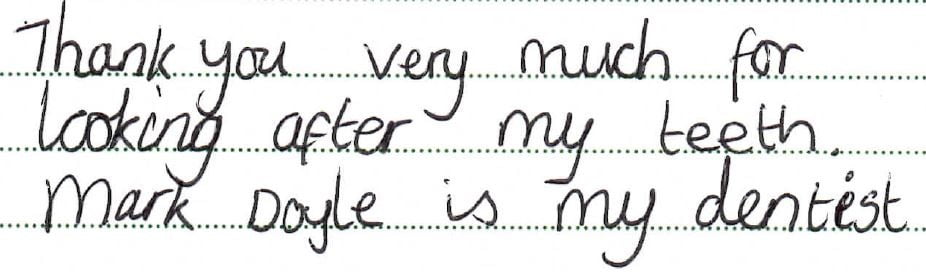 Thank you very much for
looking after my teeth.
Mark Doyle is my dentist